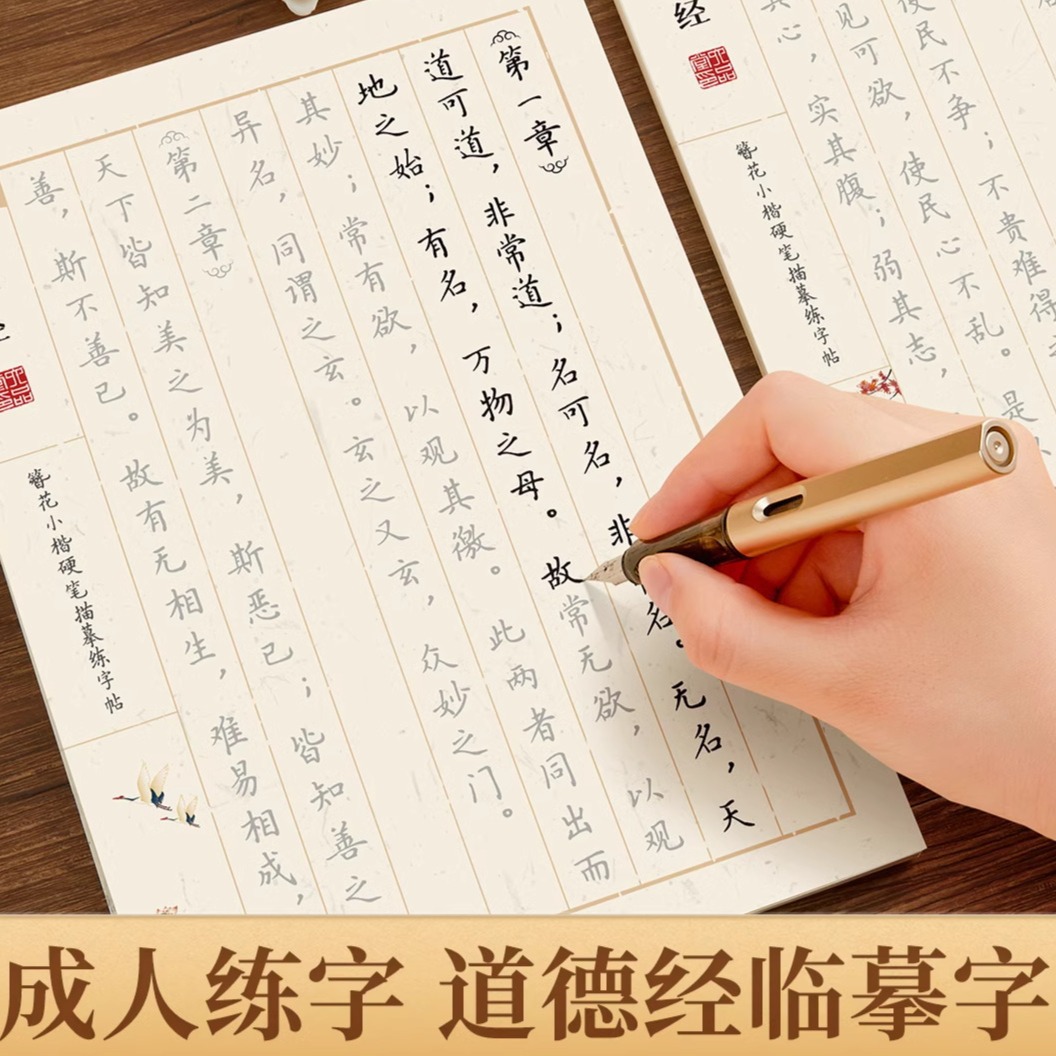 第一章
道可道，非常道；名可名，非名。无名，天
地之始；有名，万物之母。故常无欲，以观
其妙；常有欲，以观其徼。此两者同出而
异名，同谓之玄。玄之又玄，众妙之门。
第二章
天下皆知美之为美，斯恶已；皆知善之
善，斯不善已。故有无相生，难易相成，
簪花小楷硬笔描摹练字帖
使民不争；不贵难得
见可欲，使民心不乱。是
其心，实其腹；弱其志，
经
簪花小楷硬笔描摹练字帖
成人练字 道德经临摹字